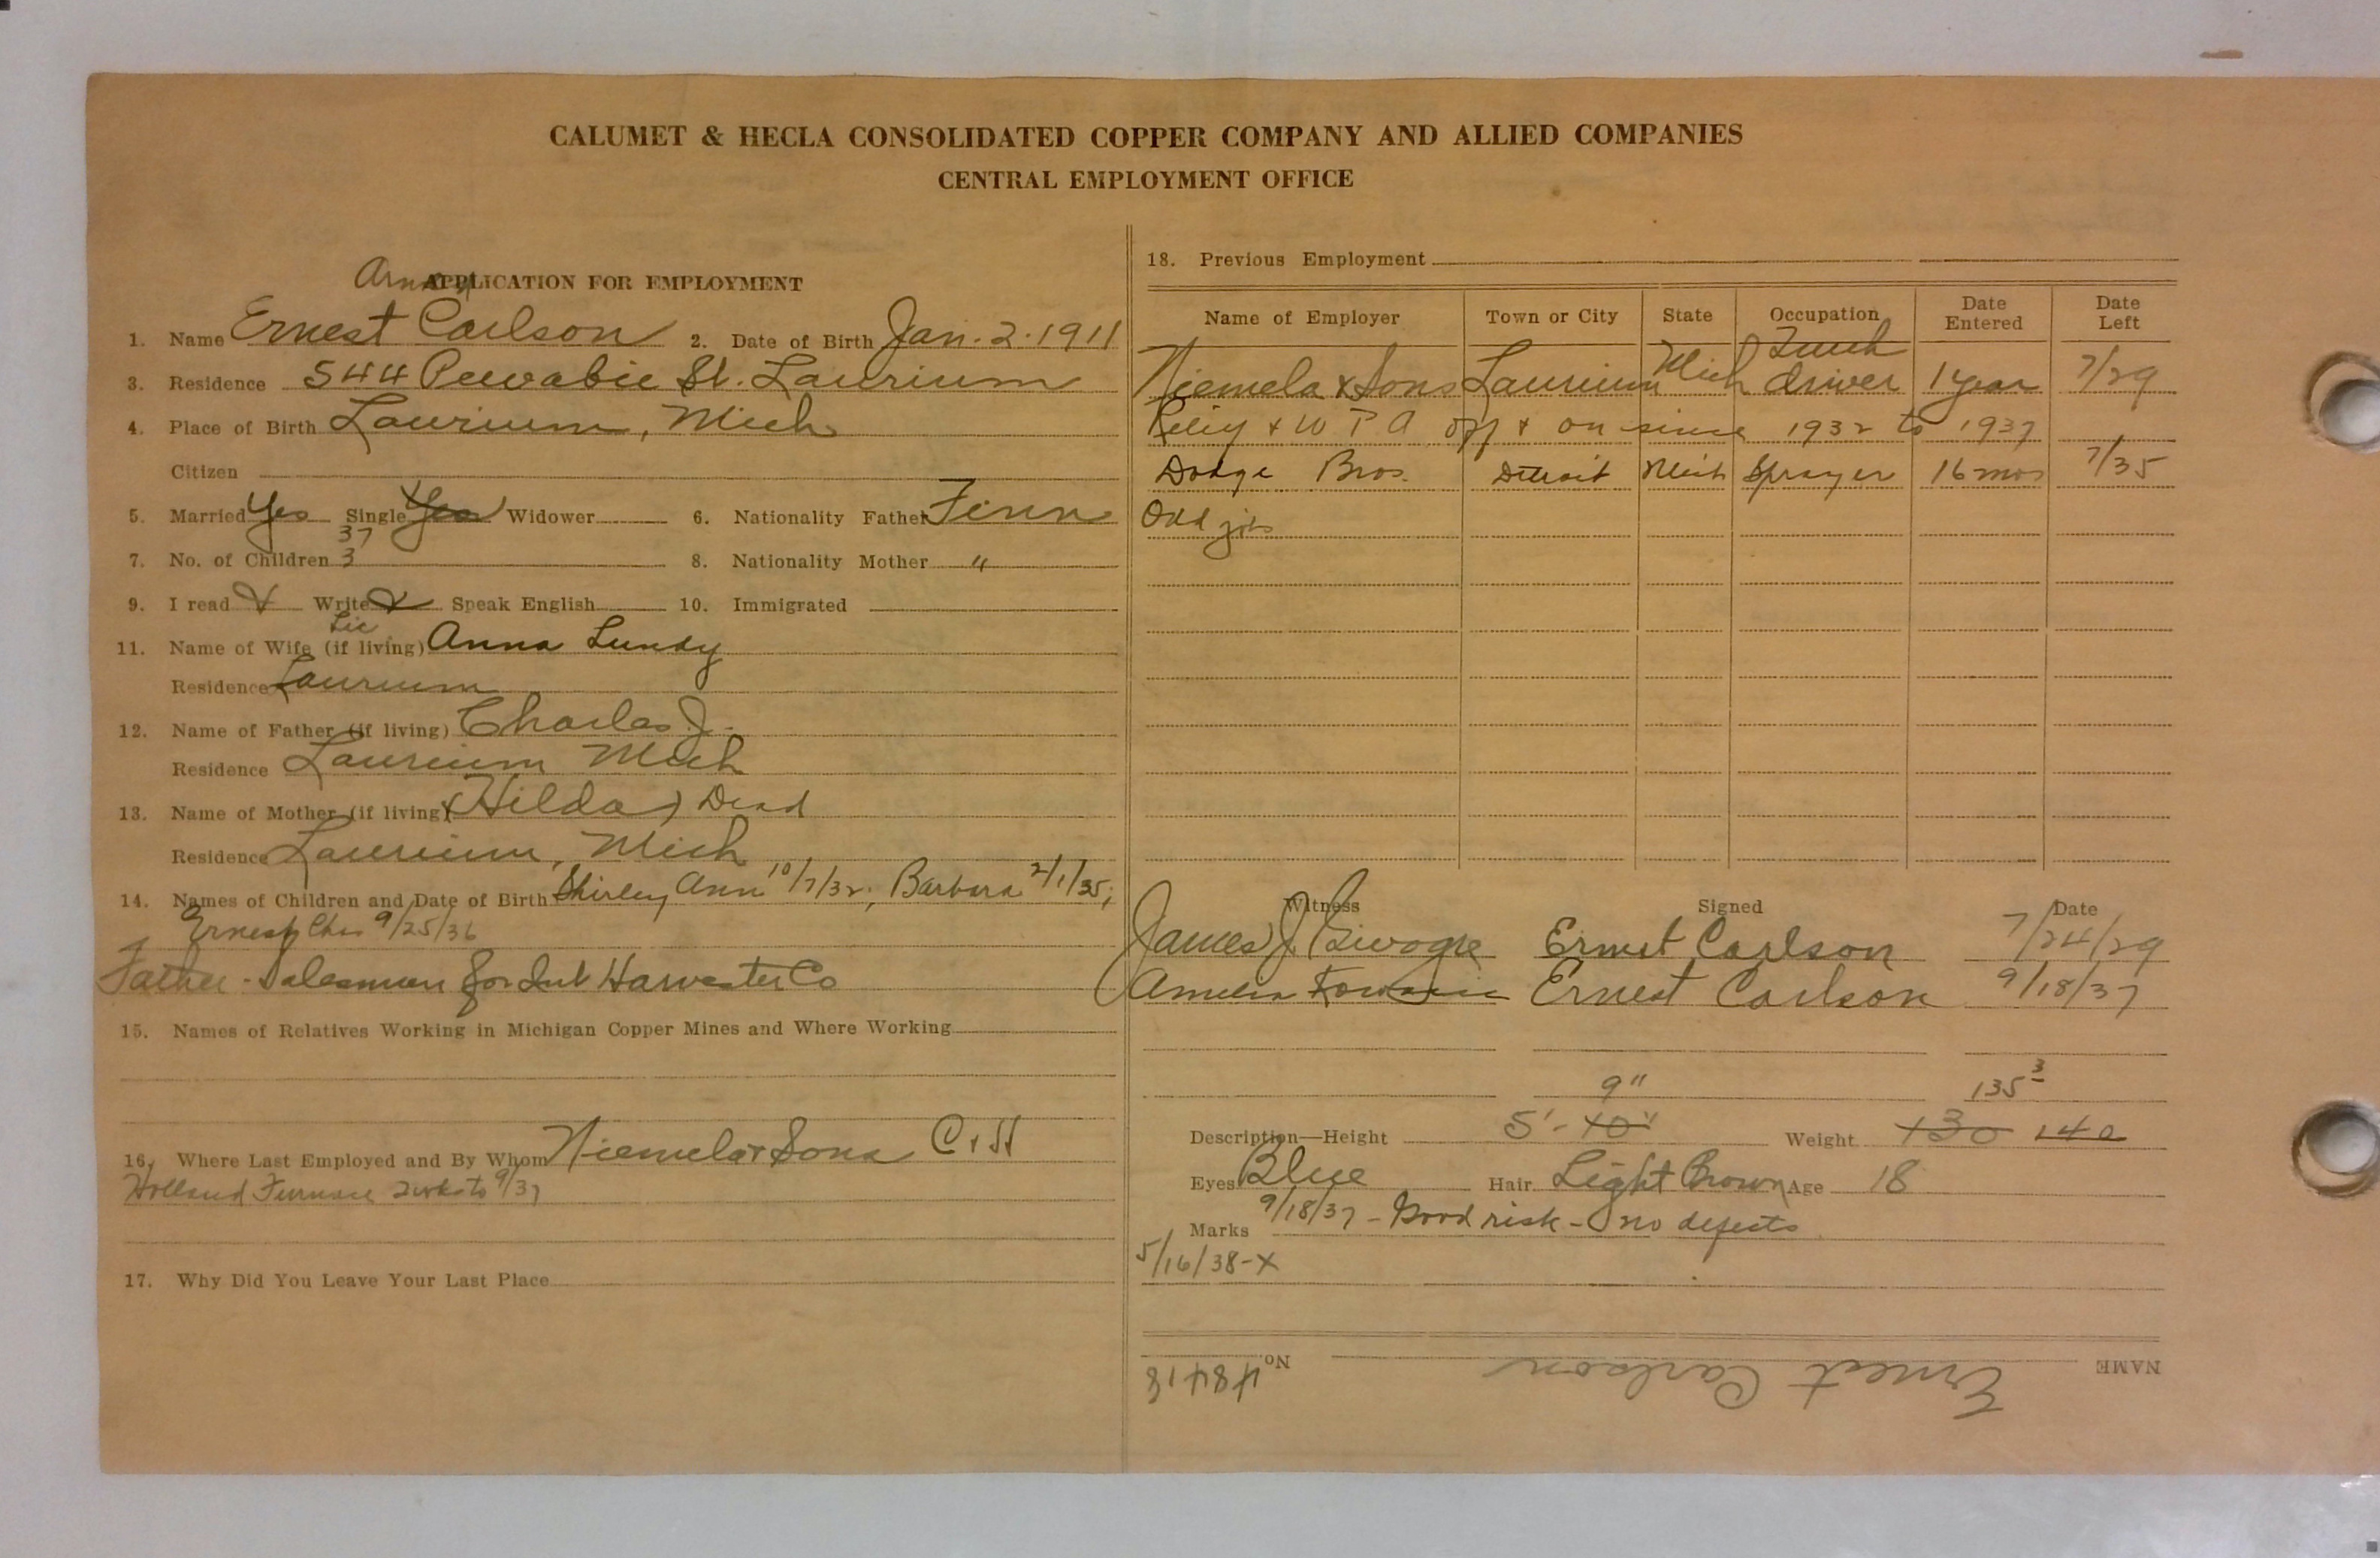 CALUMET & HECLA CONSOLIDATED COPPER COMPANY AND ALLIED COMPANIES
CENTRAL EMPLOYMENT OFFICE
APPLICATION FOR EMPLOYMENT
1. Name Ernest Carlson 2. Date of Birth Jan. 2. 1911
3. Residence 544 Pewabic St. Laurium
4. Place of Birth Laurium, Mich
Citizen
5. Married Yes Single Yes Widower 6. Nationality Father Finn
37
7. No. of Children 3 8. Nationality Mother "
9. I read X Write X Speak English 10. Immigrated
11. Name of Wife (if living) Anna Lundy
Residence Laurium
12. Name of Father (if living) Charles J.
Residence Laurium Mich
13. Name of Mother (if living) (Hilda) Dead
Residence Laurium, Mich
14. Names of Children and Date of Birth Shirley Ann 10/7/32; Barbara 2/1/35;
Ernest Chas 9/25/36
Father - Salesman for Int Harvester Co
15. Names of Relatives Working in Michigan Copper Mines and Where Working
16. Where Last Employed and By Whom Niemela & Sons C & H
Holland Furnace 2 wks to 9/37
17. Why Did You Leave Your Last Place
18. Previous Employment
Name of Employer Town or City State Occupation Date Entered Date Left
Niemela & Sons Laurium Mich Truck driver 1 year 7/29
& W P A off & on since 1932 to 1937
Dodge Bros. Detroit Mich Sprayer 16 mos 7/35
Odd jobs
Witness Signed Date
James J. Ernest Carlson 7/24/29
Amelia Ernest Carlson 9/18/37
9" 135 3
Description—Height 5'-10" Weight 130 140
Eyes Blue Hair Light Brown Age 18
Marks 9/18/37 - Good risk - no defects
5/16/38-X
NAME Ernest Carlson No. 48418